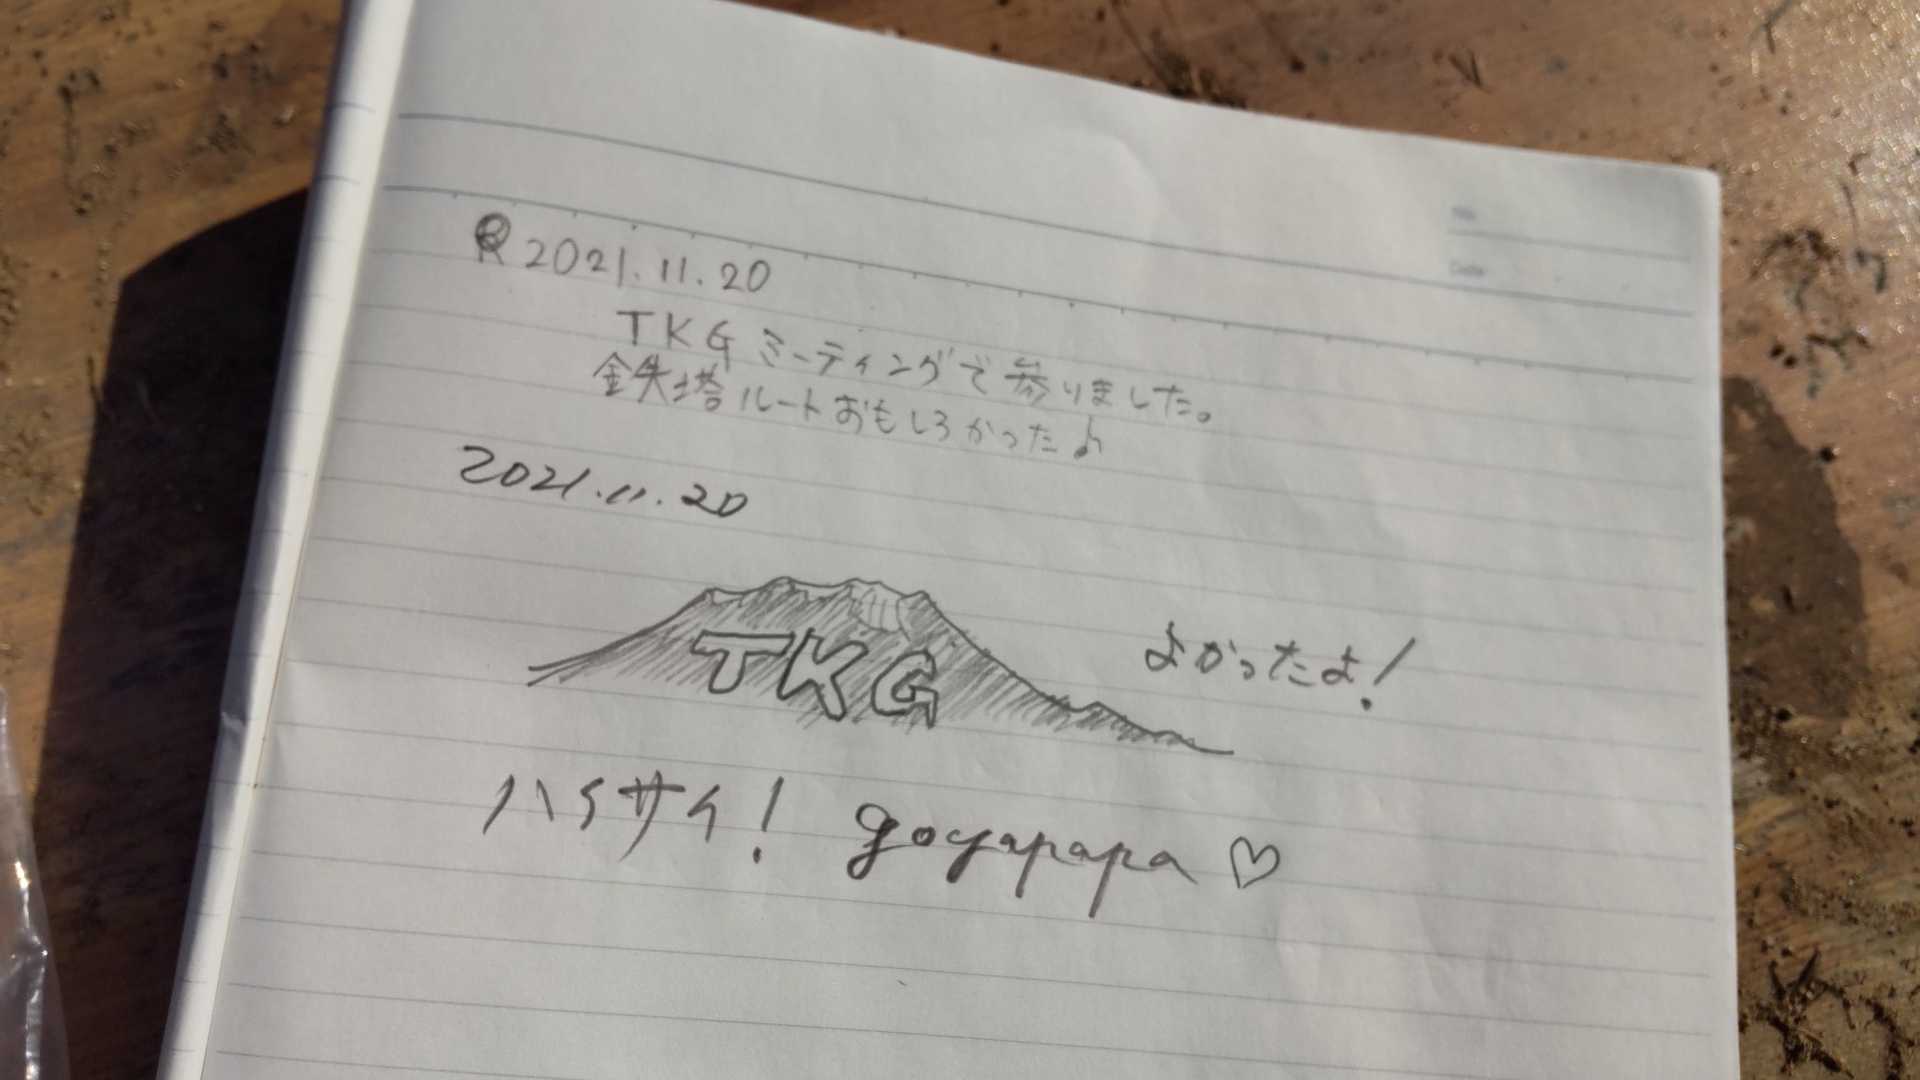 2021.11.20
TKGミーティングで参りました。
鉄塔ルートおもしろかった♪
2021.11.20
TKG
よかったよ!
ハイサイ! goyapapa♡
Date